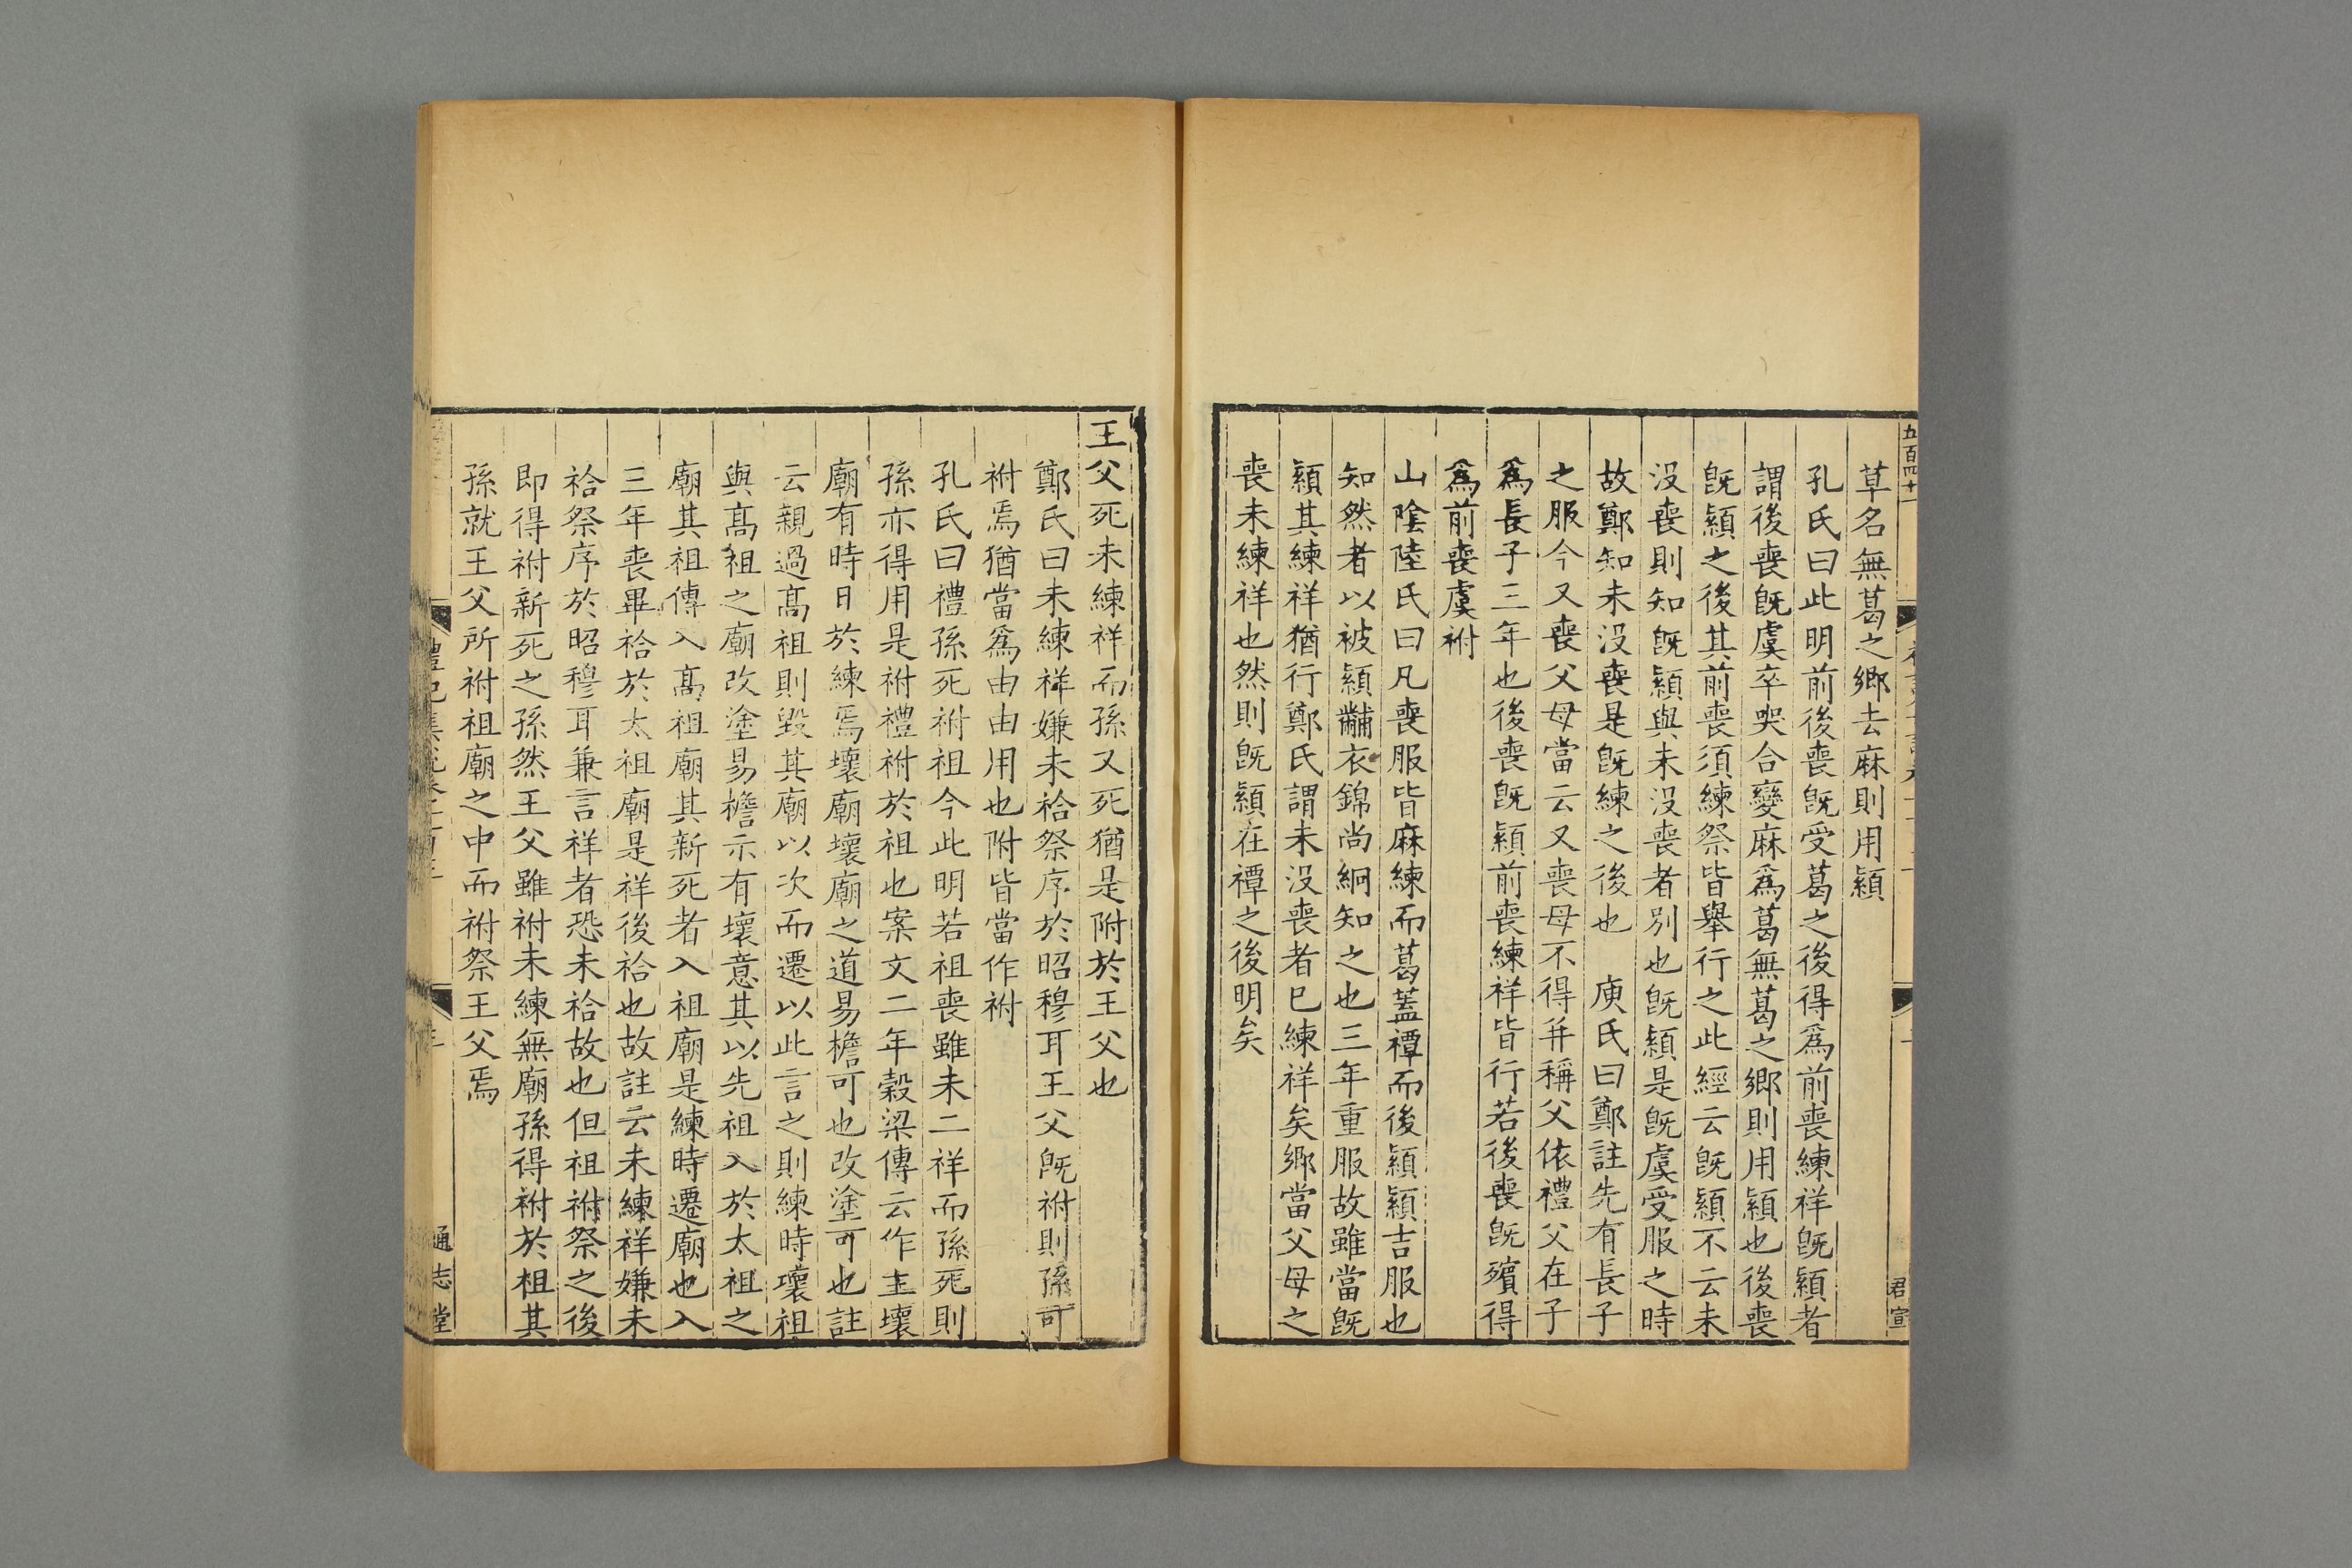 五百四十一
君宣
草名無葛之鄉去麻則用顈
孔氏曰此明前後喪旣受葛之後得爲前喪練祥旣顈者
謂後喪旣虞卒哭合變麻爲葛無葛之鄉則用顈也後喪
旣顈之後其前喪須練祭皆舉行之此經云旣顈不云未
沒喪則知旣顈與未沒喪者別也旣顈是旣虞受服之時
故鄭知未沒喪是旣練之後也　庾氏曰鄭註先有長子
之服今又喪父母當云又喪母不得幷稱父依禮父在子
爲長子三年也後喪旣顈前喪練祥皆行若後喪旣殯得
爲前喪虞祔
山陰陸氏曰凡喪服皆麻練而葛蓋禫而後顈顈吉服也
知然者以被顈黼衣錦尚絅知之也三年重服故雖當旣
顈其練祥猶行鄭氏謂未沒喪者已練祥矣鄉當父母之
喪未練祥也然則旣顈在禫之後明矣
王父死未練祥而孫又死猶是附於王父也
鄭氏曰未練祥嫌未祫祭序於昭穆耳王父旣祔則孫可
祔焉猶當爲由由用也附皆當作祔
孔氏曰禮孫死祔祖今此明若祖喪雖未二祥而孫死則
孫亦得用是祔禮祔於祖也案文二年穀梁傳云作主壞
廟有時日於練焉壞廟壞廟之道易檐可也改塗可也註
云親過高祖則毀其廟以次而遷以此言之則練時壞祖
與高祖之廟改塗易檐示有壞意其以先祖入於太祖之
廟其祖傳入高祖廟其新死者入祖廟是練時遷廟也入
三年喪畢祫於太祖廟是祥後祫也故註云未練祥嫌未
祫祭序於昭穆耳兼言祥者恐未祫故也但祖祔祭之後
即得祔新死之孫然王父雖祔未練無廟孫得祔於祖其
孫就王父所祔祖廟之中而祔祭王父焉
通志堂